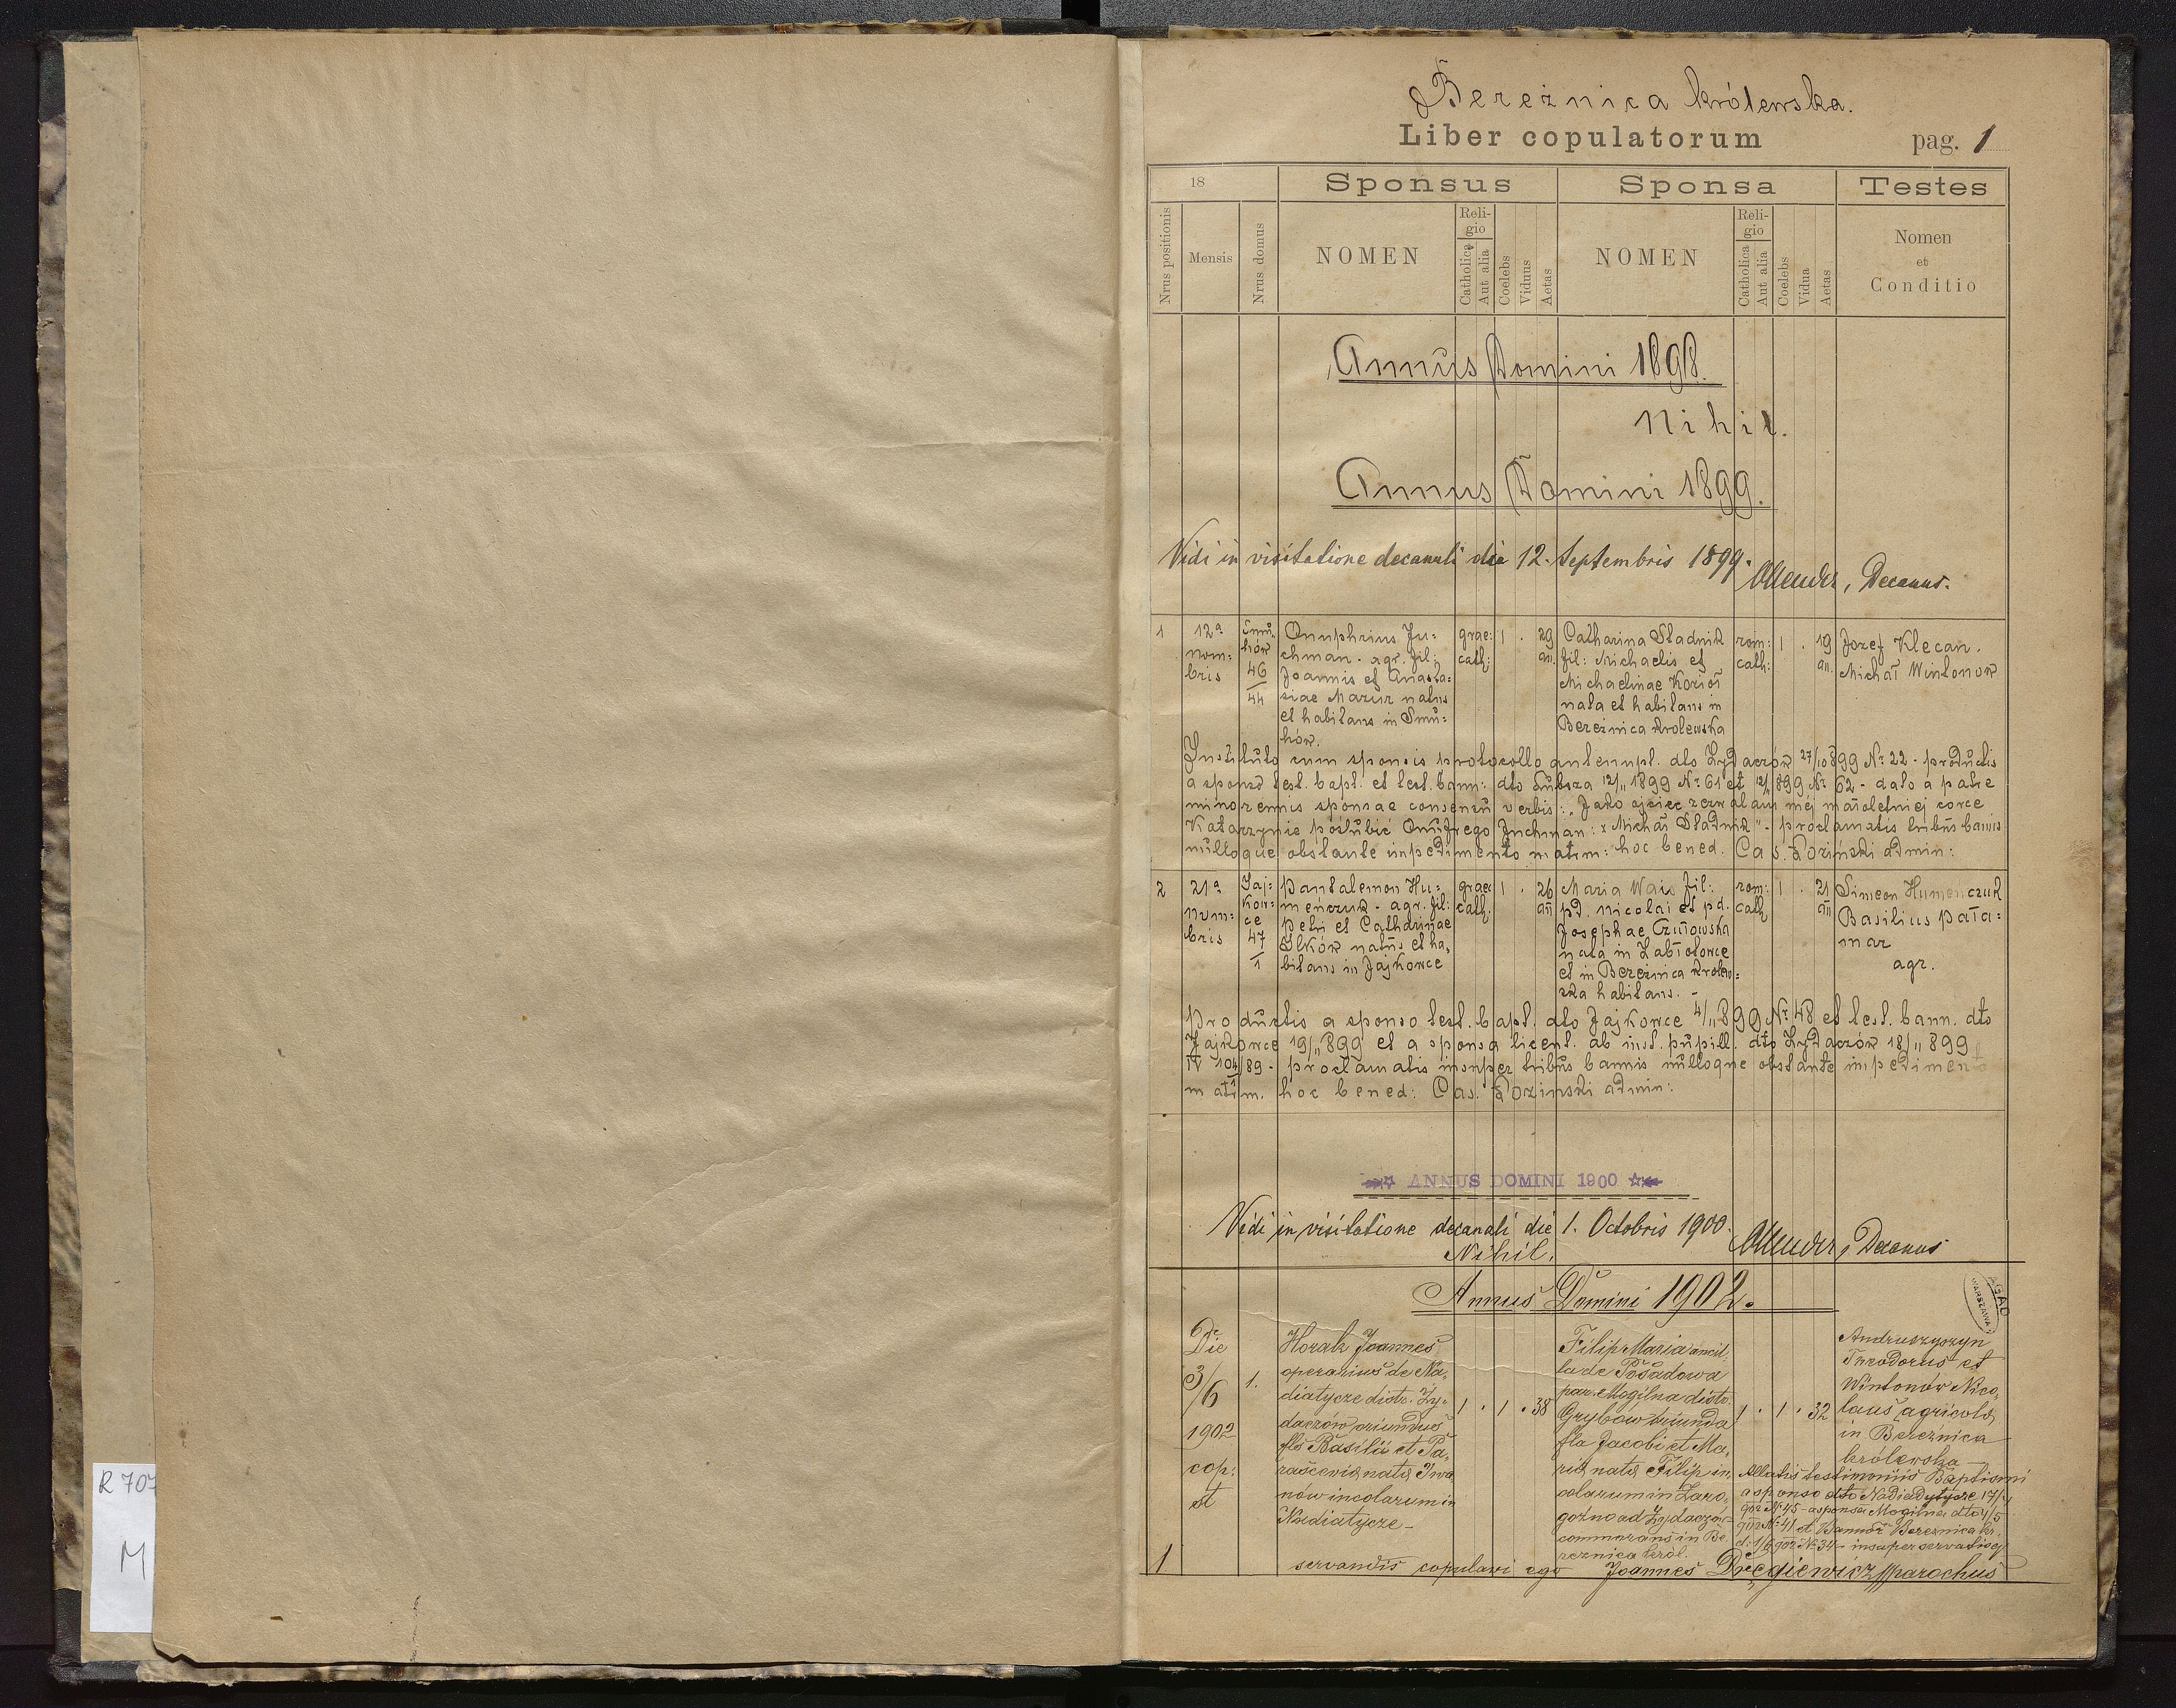 Bereżnica królewska.
Liber copulatorum
pag. 1
18
Sponsus
Sponsa
Testes
Nrus positionis
Mensis
Nrus domus
NOMEN
Religio
Catholica
Aut alia
Coelebs
Viduus
Aetas
NOMEN
Religio
Catholica
Aut alia
Coelebs
Vidua
Aetas
Nomen
et
Conditio
Annus Domini 1898.
Nihil.
Annus Domini 1899.
Vidi in visitatione decanali die 12. Septembris 1899.
Decanus.
1
12a
novem=
bris
Smu=
hów
46
44
Onuphrius Ju=
chman - agr. fil:
Joannis et Anasta=
siae Mazur natus
et habitans in Smu=
hów.
grae:
cath:
1 .
29
an.
Catharina Sladnik
fil: Michaelis et
Michaelinae Kozioł
nata et habitans in
Bereżnica królewska
rom:
cath:
1 .
19
an.
Jozef Klecan.
Michał Wintonow
Instituto cum sponsis protocollo antenupt. dto Żydaczów 27/10 899 Nr 22 - productis
a sponso test. bapt. et test. bann: dto Lubsza 12/11 1899 Nr 61 et 12/11 899 Nr 62 - dato a patre
minorennis sponsae consensu verbis: „Jako ojciec zezwalam mej małoletniej corce
Katarzynie poślubić Onufrego Juchman: x Michał Sladnik" - proclamatis tribus bannis
nulloque obstante impedimento matrm: hoc bened. Cas. Łoziński admin:
2
21a
novem=
bris
Jaj=
kow=
ce
47
1
Pantalemon Hu=
meńczuk - agr. fil:
Petri et Catharinae
Ilków natus et ha=
bitans in Jajkowce
graec
cath.
1 .
26
an
Maria Wais fil:
pd. Nicolai et pd.
Josephae
nata in Żabłotowce
et in Bereżnica królew=
ska habitans. -
rom:
cath
1 .
21
an
Simeon Humenczuk
Basilius Pała=
mar
agr.
Productis a sponso test. bapt. dto Jajkowce 4/11 899 Nr 48 et test. bann. dto
Jajkowce 19/11 899 et a sponsa licent. ab inst. pupill. dto Żydaczów 18/11 899
IV 104/89 - proclamatis insuper tribus bannis nulloque obstante impedimento
matrm. hoc bened: Cas. Łozinski admin:
ANNUS DOMINI 1900
Vidi in visitatione decanali die 1. Octobris 1900.
Decanus
Nihil.
Annus Domini 1902.
AGAD
WARSZAWA
Die
3/6
1902
cop:
st
1.
Horak Joannes
operarius de Na=
diatycze distr. Ży=
daczów oriundus
fls Basilii et Pa=
rascevia nata Iwa
nów incolarum in
Nadiatycze -
1 . 1 . 38
Filip Maria ancil
la de Posadowa
par. Mogilna distr.
Grybow oriunda
fla Jacobi et Ma=
ria nata Filip in
colarum in Zaro=
goźno ad Żydaczów
commorans in Be
reżnica król.
1 . 1 . 32
Andruszyszyn
Theodorus et
Wintonów Nico=
laus agricola
in Bereżnica
królewska
Allatis testimoniis Baptismi
a sponso dto Nadiatycze 17/4
902 Nr 45 - a sponsa Mogilna dto 4/5
902 Nr 41 et Bannor Bereżnica kr.
d. 1/6 902 Nr 34 - insuper servatis
1.
servandis copulavi ego Joannes Dręgiewicz parochus
R 707
M